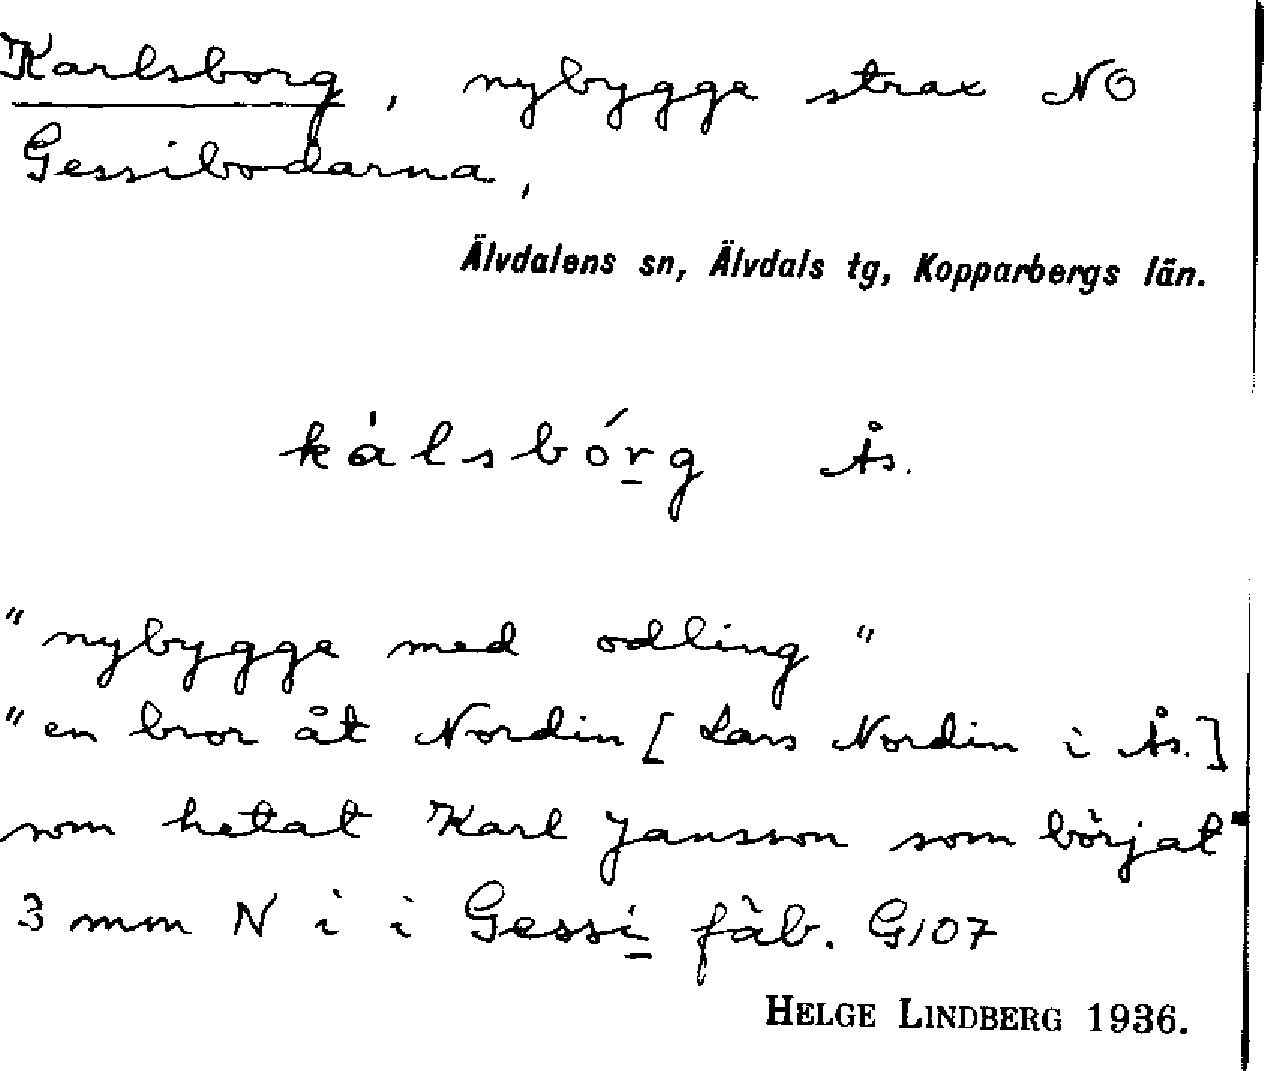 Karlsborg, nybygge strax NO
Gessibodarna,
Älvdalens sn, Älvdals tg, Kopparbergs län.
kálsbórg Ås.
"nybygge med odling"
"en bror åt Nordin [Lars Nordin i Ås.]
som hetat Karl Jansson som börjat"
3 mm N i i Gessi fäb. G107
HELGE LINDBERG 1936.